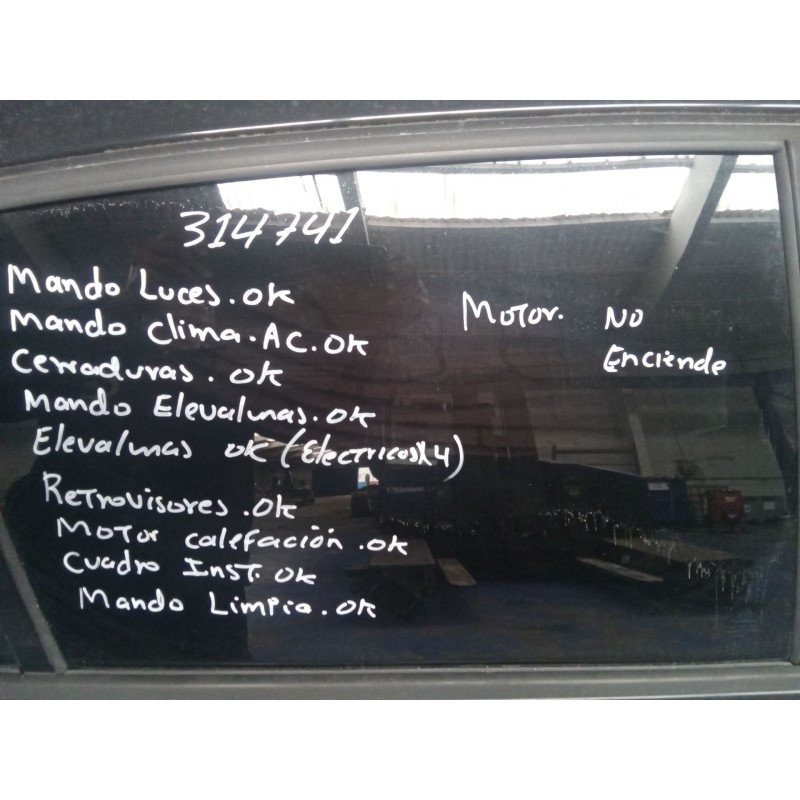 314741
Mando Luces.ok
Mando clima.AC.OK
Cerraduras.ok
Mando Elevalunas.ok
Elevalunas ok (Electricos X4)
Retrovisores.ok
Motor calefación.ok
Cuadro Inst.ok
Mando Limpia.ok
Motor. No
Enciende